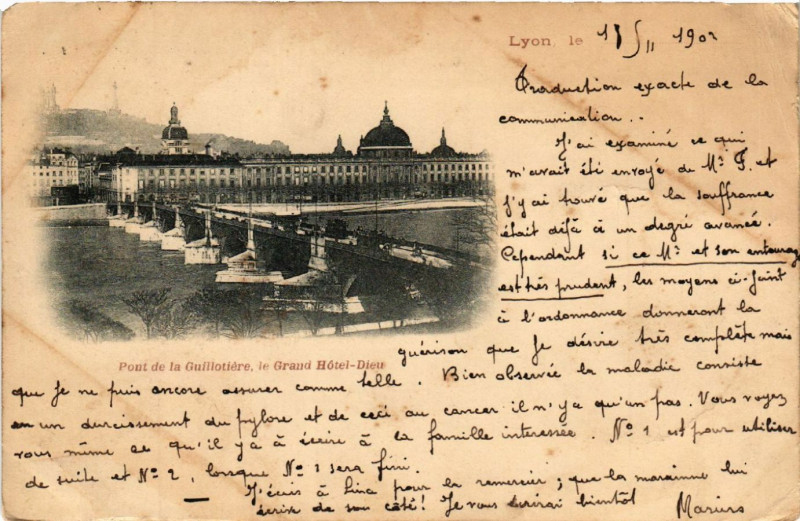 Lyon, le 17/11 1902
Traduction exacte de la
communication..
J'ai examiné ce qui
m'avait été envoyé de Mr F. et
j'y ai trouvé que la souffrance
était déjà à un degré avancé.
Cependant si ce Mr et son entourage
est très prudent, les moyens ci-joint
à l'ordonnance donneront la
guérison que je désire très complète mais
Pont de la Guillotière, le Grand Hôtel-Dieu
que je ne puis encore assurer comme telle. Bien observée la maladie consiste
en un durcissement du pylore et de ceci au cancer il n'y a qu'un pas. Vous voyez
vous même ce qu'il y a à écrire à la famille interessée. No 1 est pour utiliser
de suite et No 2, lorsque No 1 sera fini.
J'écris à pour la remercier; que la marainne lui
écrive de son côté! Je vous écrirai bientôt Marius